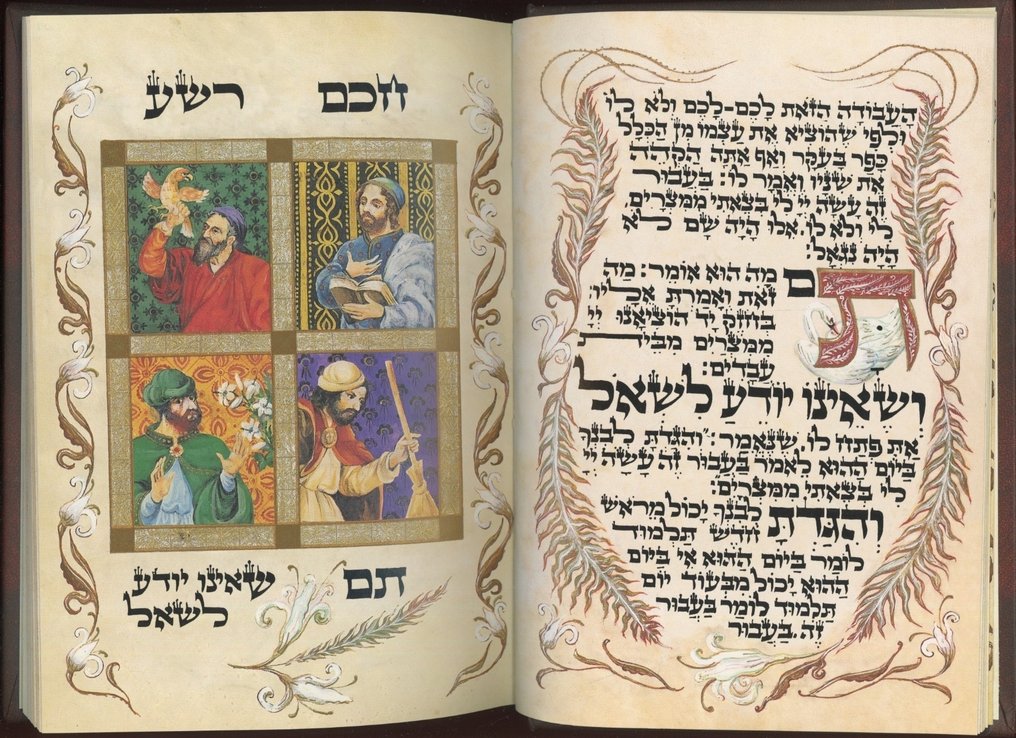 העבודה הזאת לכם-לכם ולא לו
ולפי שהוציא את עצמו מן הכלל
כפר בעקר ואף אתה הקהה
את שניו ואמר לו: בעבור
זה עשה יי לי בצאתי ממצרים
לי ולא לו. אלו היה שם לא
היה נגאל:
תם מה הוא אומר: מה
זאת ואמרת אליו:
בחוזק יד הוציאנו יי
ממצרים מבית
עבדים:
ושאינו יודע לשאל
את פתח לו. שנאמר: "והגדת לבנך
ביום ההוא לאמר בעבור זה עשה יי
לי בצאתי ממצרים:
והגדת לבנך יכול מראש
חודש תלמוד
לומר ביום ההוא אי ביום
ההוא יכול מבעוד יום
תלמוד לומר בעבור
זה. בעבור
חכם רשע
תם שאינו יודע
לשאל